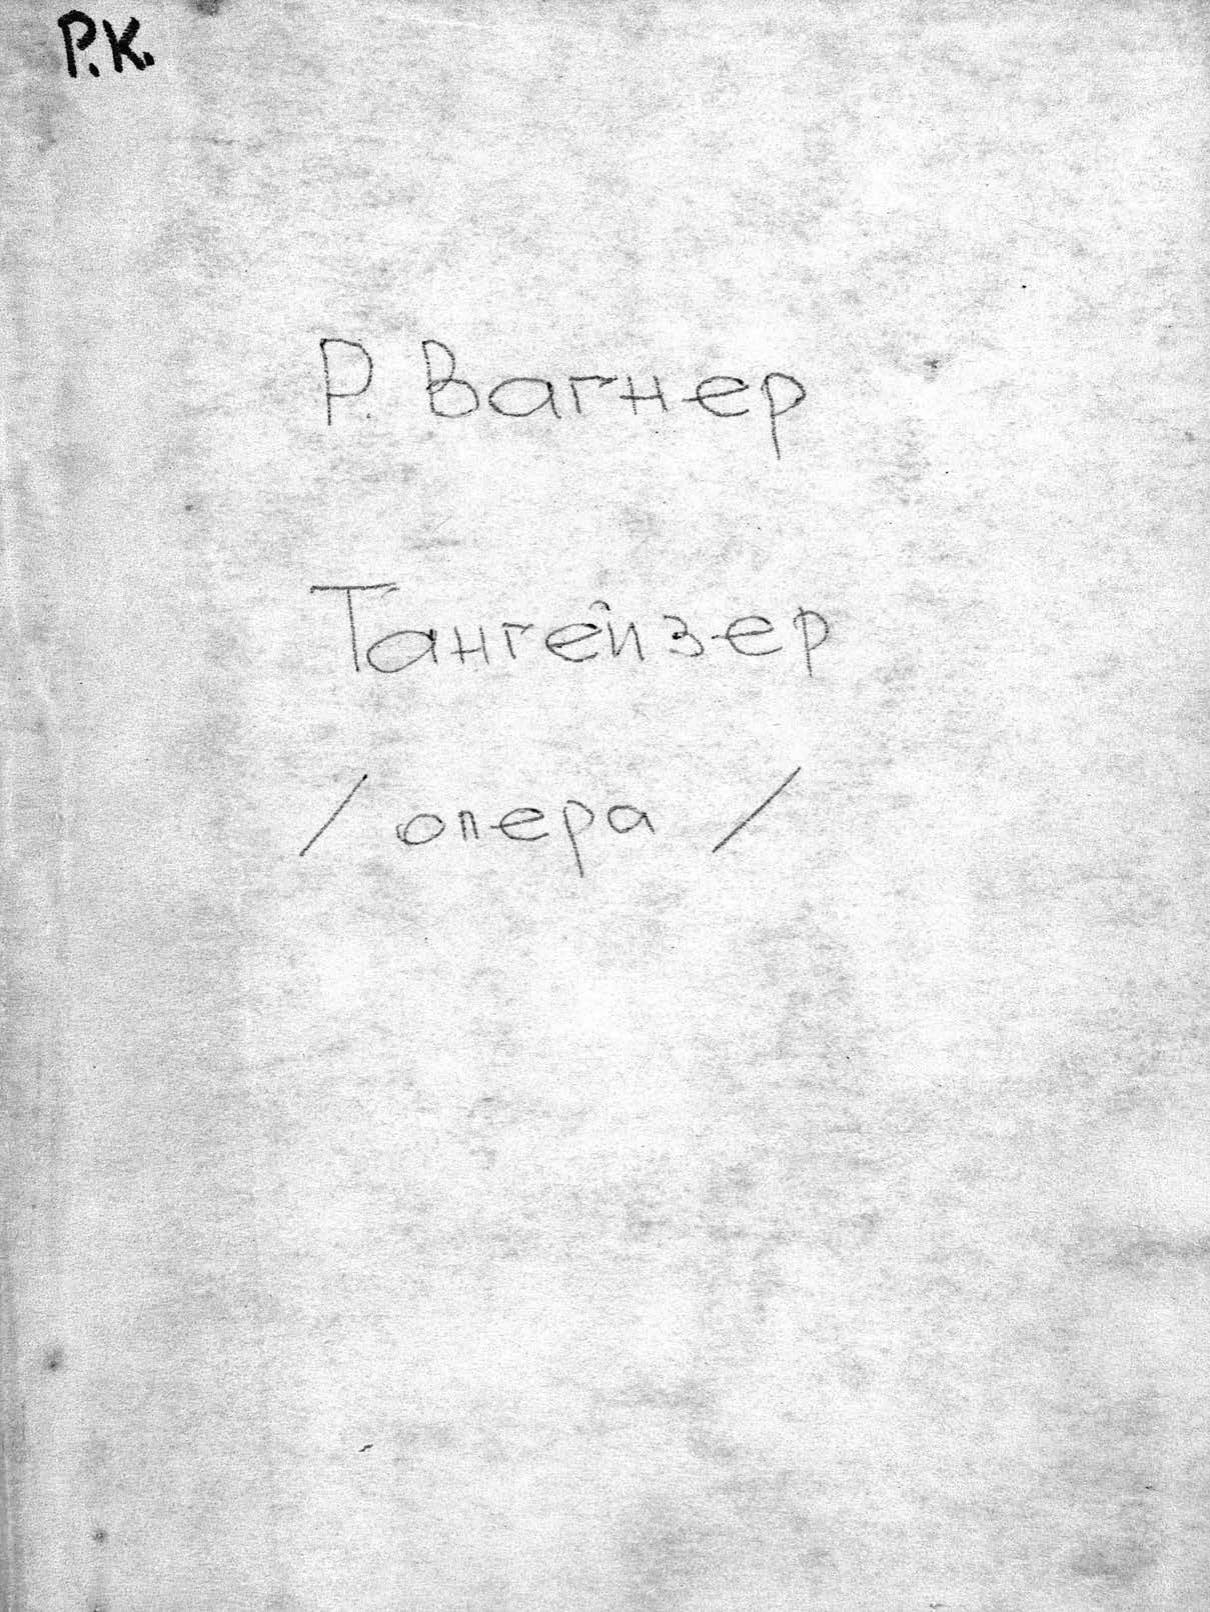 Р.К.
Р. Вагнер
Тангейзер
/ опера /